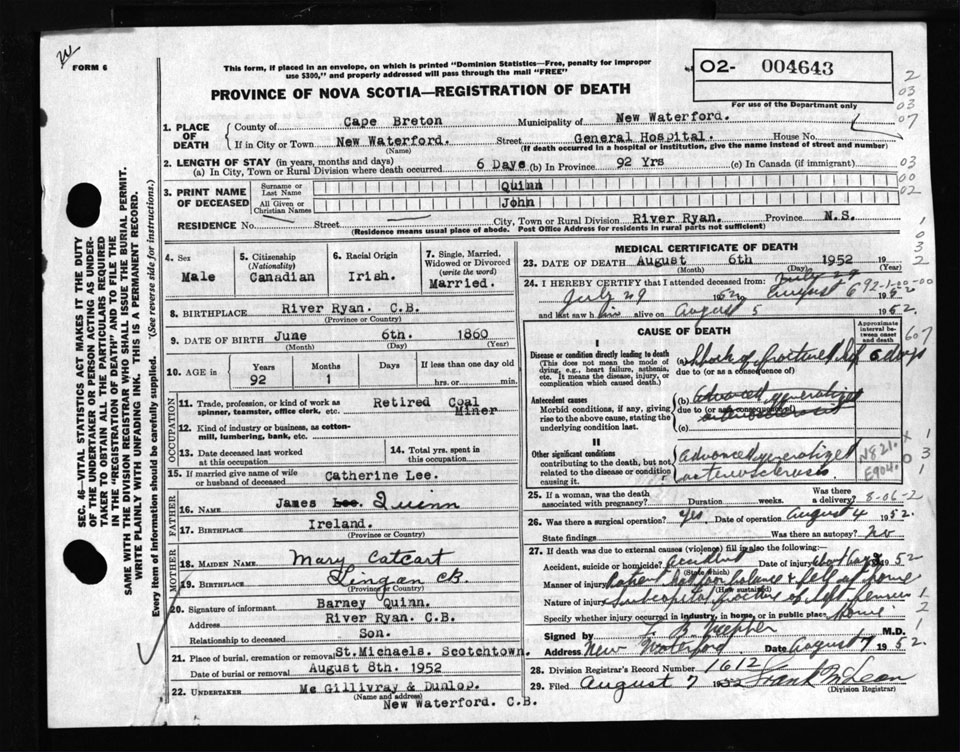 FORM 6
This form, if placed in an envelope, on which is printed "Dominion Statistics—Free, penalty for improper
use $300," and properly addressed will pass through the mail "FREE"
PROVINCE OF NOVA SCOTIA—REGISTRATION OF DEATH
02- 004643
For use of the Department only
2
03
03
07
1. PLACE OF DEATH
County of Cape Breton Municipality of New Waterford.
If in City or Town New Waterford. Street General Hospital. House No.
(Name) (If death occurred in a hospital or institution, give the name instead of street and number)
2. LENGTH OF STAY (in years, months and days)
(a) In City, Town or Rural Division where death occurred 6 Days (b) In Province 92 Yrs (c) In Canada (if immigrant)
03
00
02
3. PRINT NAME OF DECEASED
Surname or Last Name Quinn
All Given or Christian Names John
RESIDENCE No. Street City, Town or Rural Division River Ryan. Province N.S.
(Residence means usual place of abode. Post Office Address for residents in rural parts not sufficient)
SEC. 46—VITAL STATISTICS ACT MAKES IT THE DUTY
OF THE UNDERTAKER OR PERSON ACTING AS UNDER-
TAKER TO OBTAIN ALL THE PARTICULARS REQUIRED
IN THE "REGISTRATION OF DEATH" AND TO FILE THE
SAME WITH THE DIVISION REGISTRAR WHO SHALL ISSUE THE BURIAL PERMIT.
WRITE PLAINLY WITH UNFADING INK. THIS IS A PERMANENT RECORD.
Every item of information should be carefully supplied. (See reverse side for instructions.)
4. Sex
Male
5. Citizenship
(Nationality)
Canadian
6. Racial Origin
Irish.
7. Single, Married,
Widowed or Divorced
(write the word)
Married.
8. BIRTHPLACE River Ryan. C.B.
(Province or Country)
9. DATE OF BIRTH June 6th. 1860
(Month) (Day) (Year)
10. AGE in Years Months Days If less than one day
92 1 hrs. or min.
OCCUPATION
11. Trade, profession, or kind of work as
spinner, teamster, office clerk, etc. Retired Coal
Miner
12. Kind of industry or business, as cotton-
mill, lumbering, bank, etc.
13. Date deceased last worked
at this occupation
14. Total yrs. spent in
this occupation
15. If married give name of wife
or husband of deceased Catherine Lee.
FATHER
16. NAME James Lee. Quinn
17. BIRTHPLACE Ireland.
(Province or Country)
MOTHER
18. MAIDEN NAME Mary Catcart
19. BIRTHPLACE Lingan CB.
(Province or Country)
20. Signature of informant Barney Quinn.
Address River Ryan. C.B.
Relationship to deceased Son.
21. Place of burial, cremation or removal St.Michaels. Scotchtown.
Date of burial or removal August 8th. 1952
22. UNDERTAKER Mc Gillivray & Dunlop.
(Name and address)
New Waterford. C.B.
MEDICAL CERTIFICATE OF DEATH
23. DATE OF DEATH August 6th 1952 19
(Month) (Day) (Year)
24. I HEREBY CERTIFY that I attended deceased from: July 29
July 29 1952 to August 6 1952
92-1-00-00
and last saw him alive on August 5 1952.
CAUSE OF DEATH
Approximate interval between onset and death
I
Disease or condition directly leading to death
(This does not mean the mode of
dying, e.g., heart failure, asthenia,
etc. It means the disease, injury, or
complication which caused death.)
(a) Shock of fractured hip 6 days
due to (or as a consequence of)
Antecedent causes
Morbid conditions, if any, giving
rise to the above cause, stating the
underlying condition last.
(b) Advanced generalized
due to (or as a consequence of)
arteriosclerosis
(c)
II
Other significant conditions
contributing to the death, but not
related to the disease or condition
causing it.
Advanced generalized
arteriosclerosis
N821.
E904.
25. If a woman, was the death
associated with pregnancy? Duration weeks. Was there a delivery?
8-06-2
26. Was there a surgical operation? Yes Date of operation August 4 1952.
State findings Was there an autopsy? No
27. If death was due to external causes (violence) fill in also the following:
Accident, suicide or homicide? Accident Date of injury 1952
(State which)
Manner of injury Patient lost balance & fell at home
(How sustained)
Nature of injury Subcapital fracture of left femur
Specify whether injury occurred in industry, in home, or in public place. Home
Signed by M.D.
Address New Waterford Date August 7 1952.
28. Division Registrar's Record Number 1612
29. Filed August 7 1952 Frank McLean
(Division Registrar)